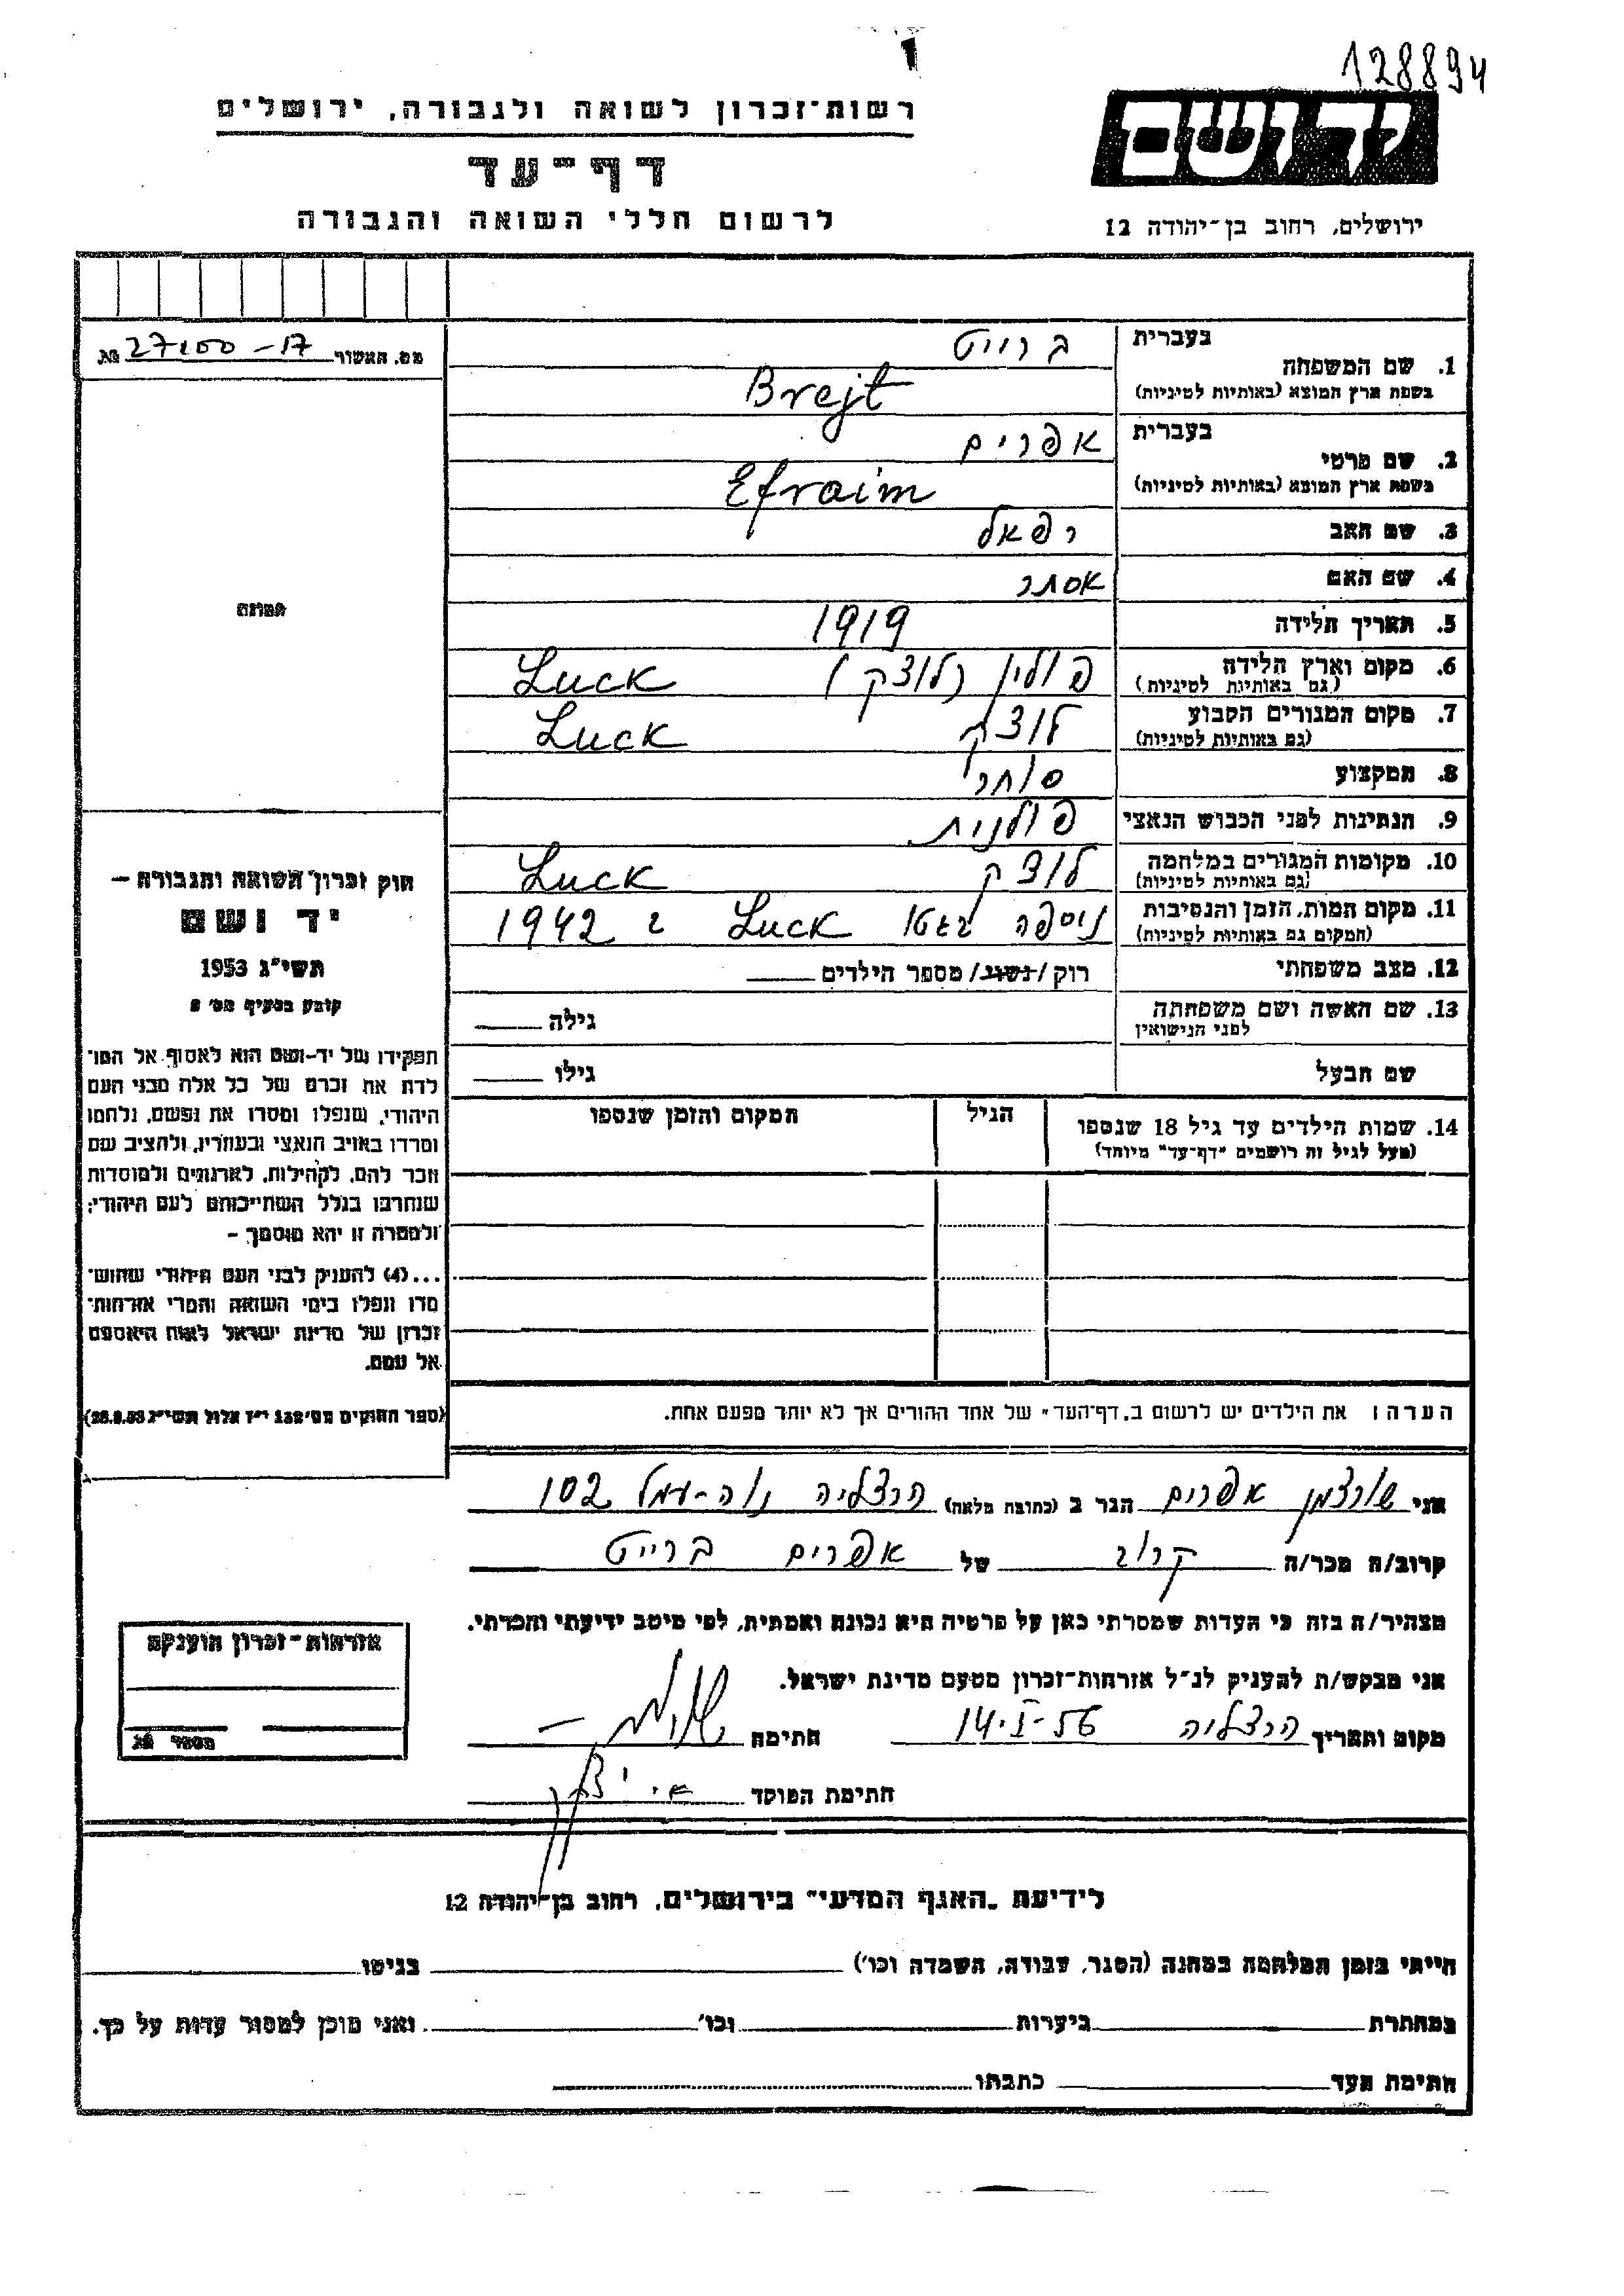 128894
יד ושם
ירושלים, רחוב בן-יהודה 12
רשות-זכרון לשואה ולגבורה, ירושלים
דף-עד
לרשום חללי השואה והגבורה
מס. האשור 27100-17 №
1. שם המשפחה בעברית ברייט
בשפת ארץ המוצא (באותיות לטיניות) Brejt
2. שם פרטי בעברית אפרים
בשפת ארץ המוצא (באותיות לטיניות) Efraim
3. שם האב רפאל
4. שם האם אסתר
5. תאריך הלידה 1919
6. מקום וארץ הלידה פולין (לוצק) Luck
(גם באותיות לטיניות)
7. מקום המגורים הקבוע לוצק Luck
(גם באותיות לטיניות)
8. המקצוע סוחר
9. הנתינות לפני הכבוש הנאצי פולנית
10. מקומות המגורים במלחמה לוצק Luck
(גם באותיות לטיניות)
11. מקום המות, הזמן והנסיבות ניספה בגטו Luck ב 1942
(המקום גם באותיות לטיניות)
12. מצב משפחתי רוק/נשוי/ מספר הילדים
13. שם האשה ושם משפחתה גילה
לפני הנישואין
שם הבעל גילו
14. שמות הילדים עד גיל 18 שנספו הגיל המקום והזמן שנספו
(מעל לגיל זה רושמים "דף-עד" מיוחד)
תמונה
חוק זכרון השואה והגבורה –
יד ושם
תשי"ג 1953
קובע בסעיף מס' 2
תפקידו של יד-ושם הוא לאסוף אל המו-
לדת את זכרם של כל אלה מבני העם
היהודי, שנפלו ומסרו את נפשם, נלחמו
ומרדו באויב הנאצי ובעוזריו, ולהציב שם
וזכר להם, לקהילות, לארגונים ולמוסדות
שנחרבו בגלל השתייכותם לעם היהודי;
ולמטרה זו יהא מוסמך –
...(4) להעניק לבני העם היהודי שהוש-
מדו ונפלו בימי השואה והמרי אזרחות-
זכרון של מדינת ישראל לאות היאספם
אל עמם.
(ספר החוקים מס' 132 י"ז אלול תשי"ג 28.8.53)
הערה: את הילדים יש לרשום ב"דף-העד" של אחד ההורים אך לא יותר מפעם אחת.
אני שורצמן אפרים הגר ב (כתובת מלאה) הרצליה נוה-עמל 102
קרוב/ה מכר/ה קרוב של אפרים ברייט
מצהיר/ה בזה כי העדות שמסרתי כאן על פרטיה היא נכונה ואמתית, לפי מיטב ידיעתי והכרתי.
אני מבקש/ת להעניק לנ"ל אזרחות-זכרון מטעם מדינת ישראל.
מקום ותאריך הרצליה 14-I-56 חתימה
חתימת הפוקד
אזרחות-זכרון הוענקה
מספר №
לידיעת "האגף המדעי" בירושלים, רחוב בן-יהודה 12
הייתי בזמן המלחמה במחנה (הסגר, עבודה, השמדה וכו') בגיטו
במחתרת ביערות וכו' ואני מוכן למסור עדות על כך.
חתימת העד כתבתו